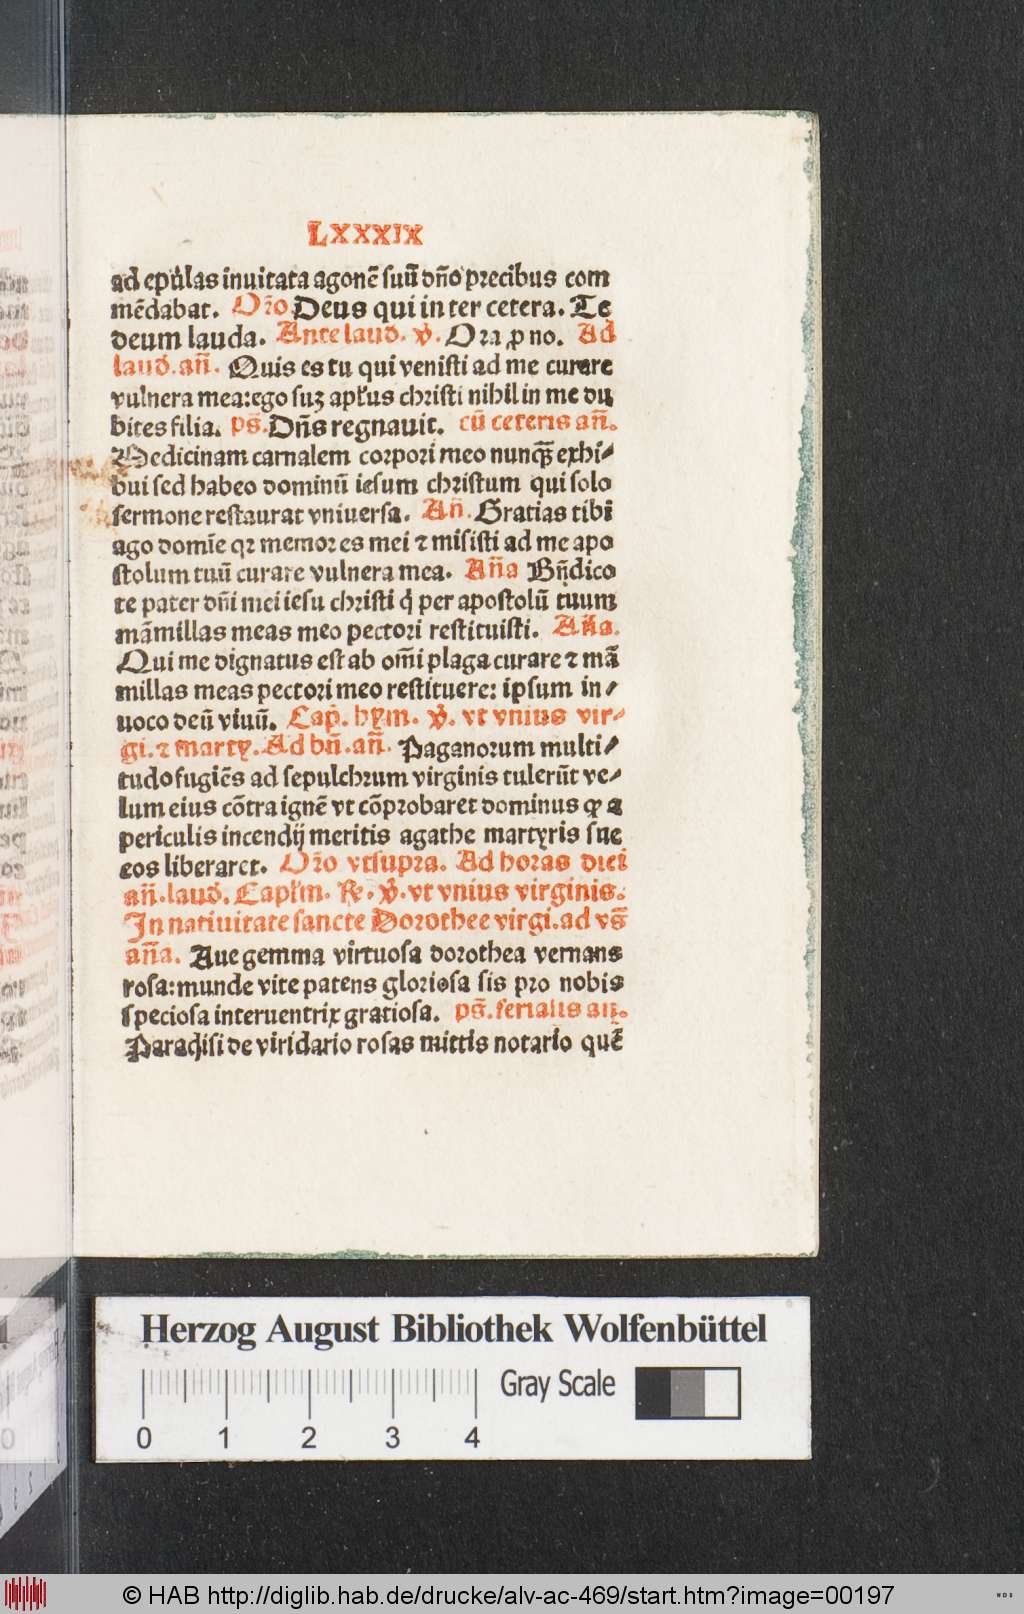 LXXXIX
ad epulas inuitata agonē suū dño precibus com
mēdabat. Orõ. Deus qui in ter cetera. Te
deum lauda. Ante laud. v̇. Ora ꝓ no. Ad
laud. añ. Quis es tu qui venisti ad me curare
vulnera mea:ego suꝫ apľus christi nihil in me du
bites filia. ps̄. Dñs regnauit. cū ceteris añ.
Medicinam carnalem corpori meo nunqꝫ̄ exhi⸗
bui sed habeo dominū iesum christum qui solo
sermone restaurat vniuersa. Añ. Gratias tibi
ago domīe qꝛ memor es mei ⁊ misisti ad me apo
stolum tuū curare vulnera mea. Añа Bñdico
te pater dñi mei iesu christi q̇ per apostolū tuum
māmillas meas meo pectori restituisti. Aña.
Qui me dignatus est ab om̄i plaga curare ⁊ mā
millas meas pectori meo restituere: ipsum in⸗
uoco deū viuū. Cap̄. hym. v̇. vt vnius vir⸗
gi. ⁊ marty. Ad bñ. añ. Paganorum multi⸗
tudo fugiēs ad sepulchrum virginis tulerūt ve⸗
lum eius cōtra ignē vt cōprobaret dominus ꝙ a
periculis incendij meritis agathe martyris sue
eos liberaret. Orõ vtsupra. Ad horas diei
añ. laud. Capľm. ℟. v̇. vt vnius virginis.
In natiuitate sancte Dorothee virgi. ad vs̄
aña. Aue gemma virtuosa dorothea vernans
rosa:munde vite patens gloriosa sis pro nobis
speciosa interuentrix gratiosa. ps̄. ferialis añ.
Paradisi de viridario rosas mittis notario quē
Herzog August Bibliothek Wolfenbüttel
Gray Scale
0 1 2 3 4
© HAB http://diglib.hab.de/drucke/alv-ac-469/start.htm?image=00197